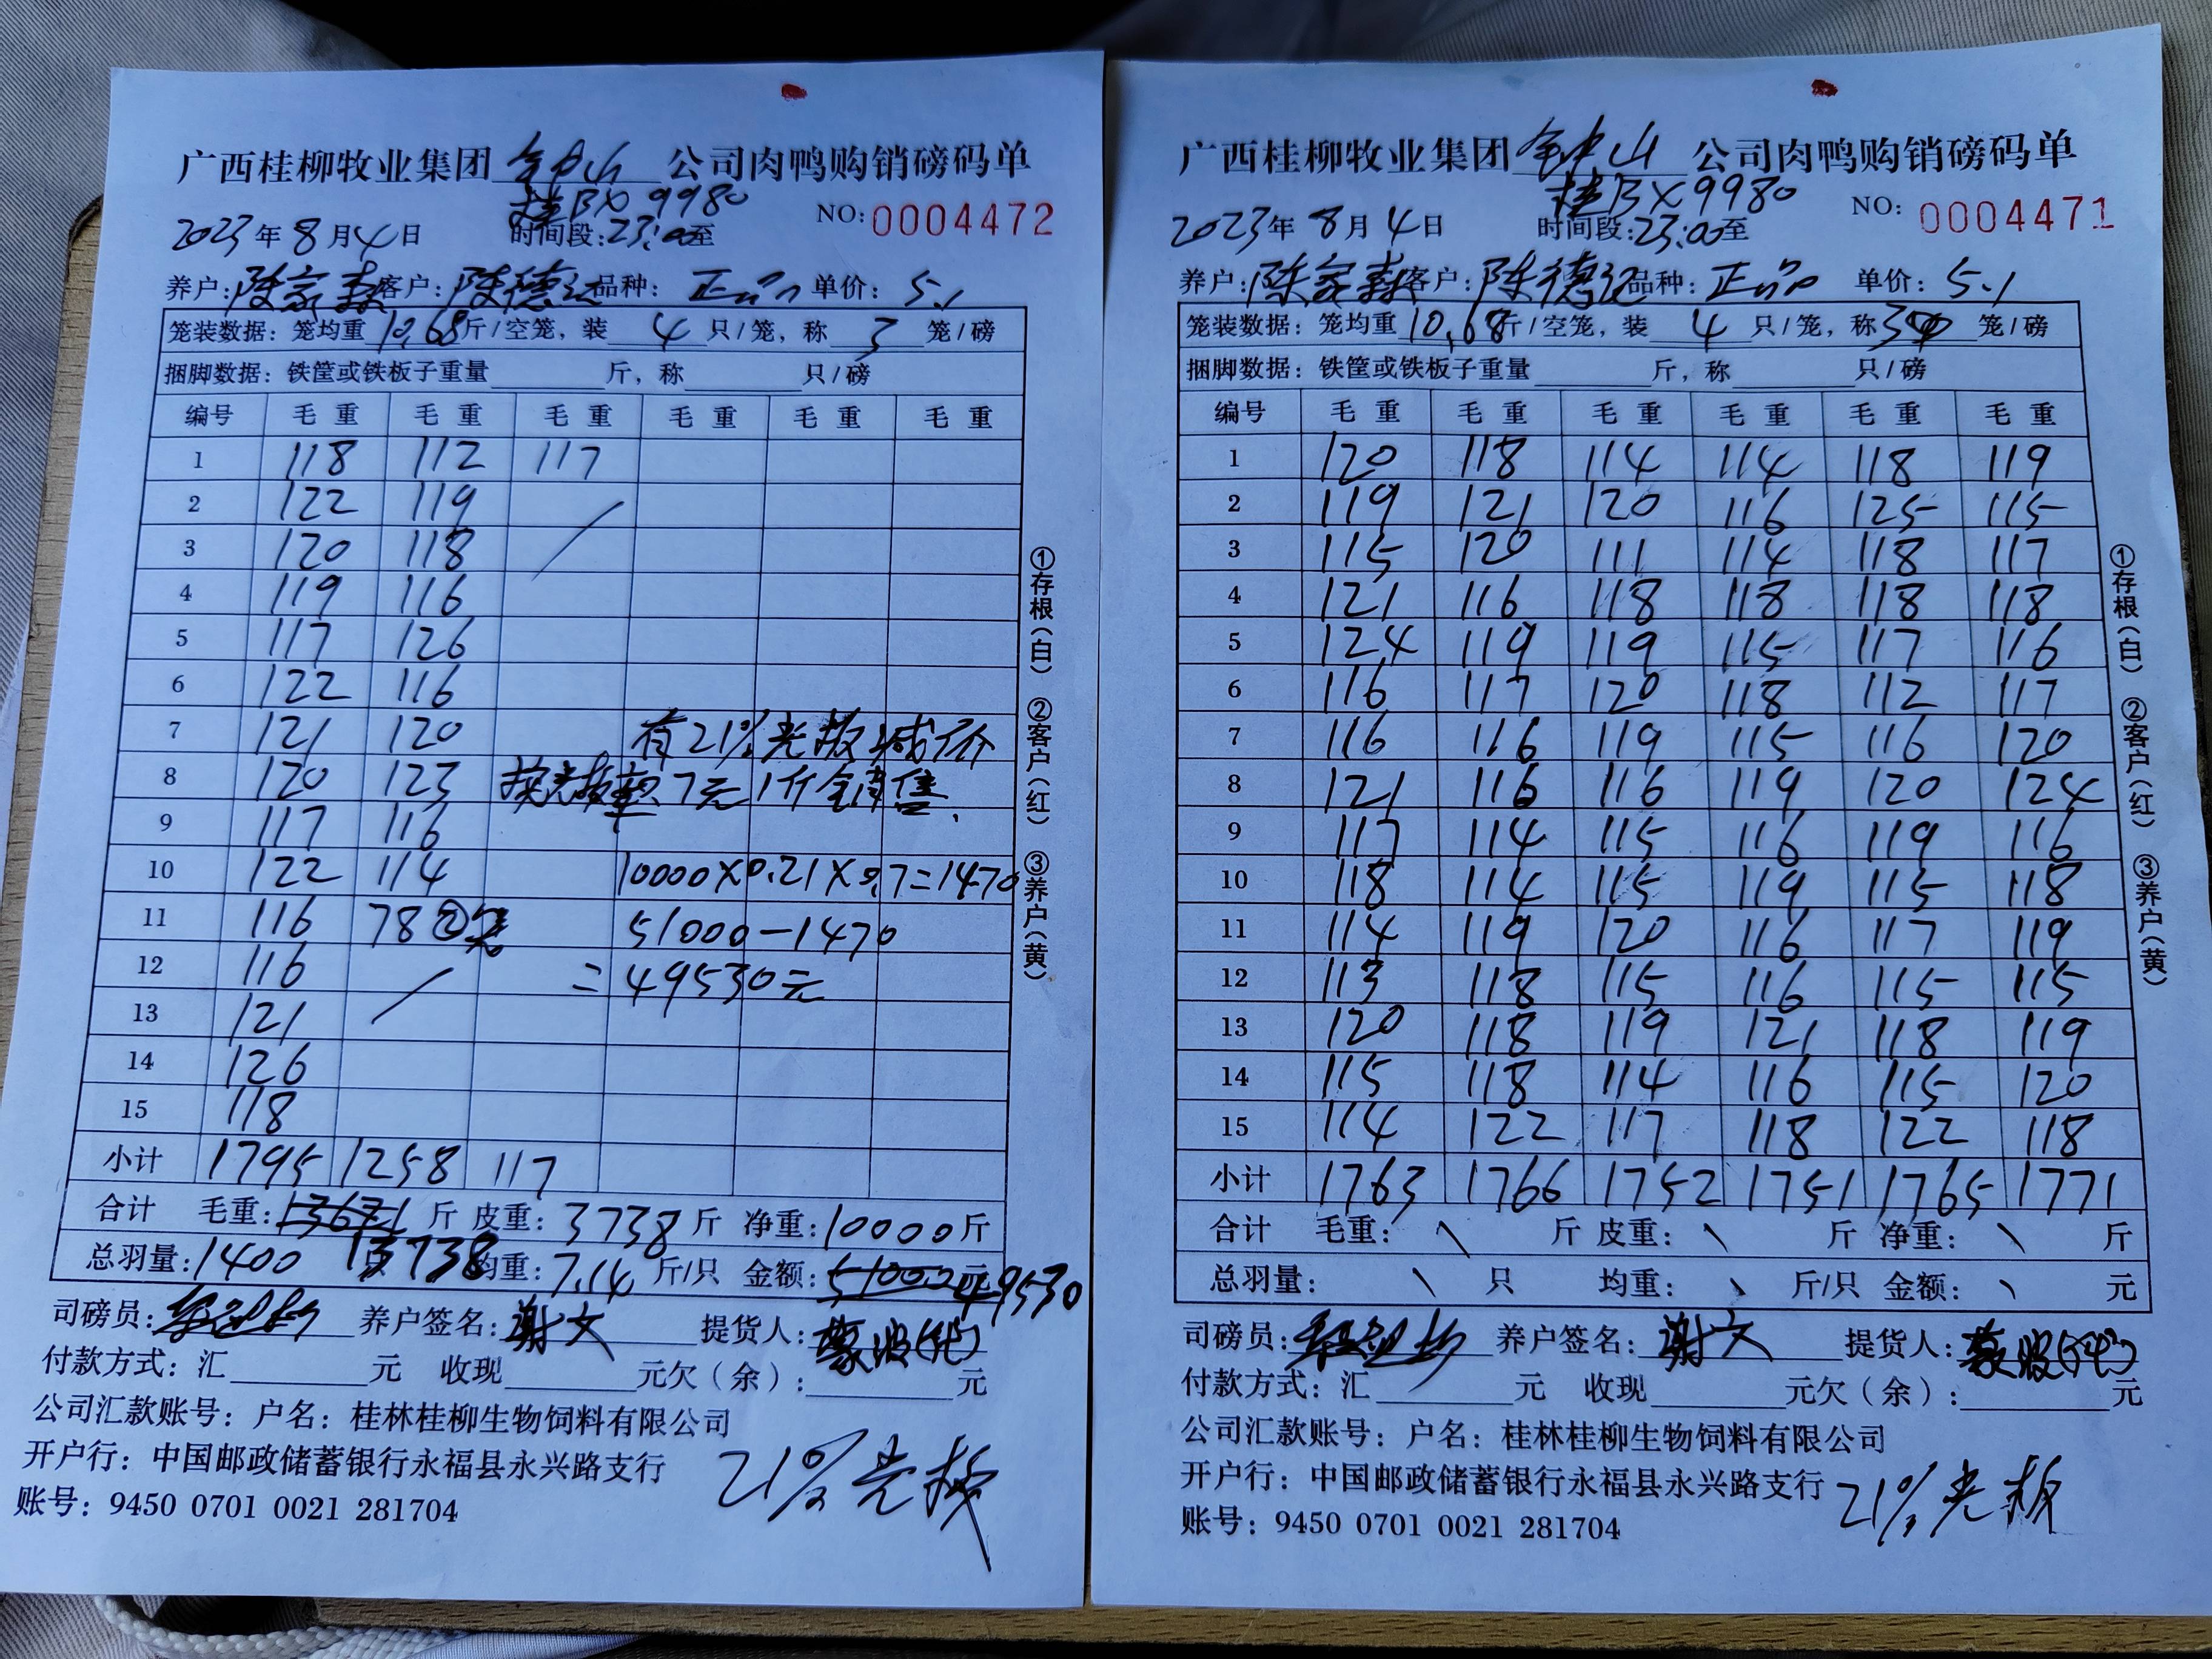 广西桂柳牧业集团 公司肉鸭购销磅码单
桂BX9980
2023年8月4日 时间段:23:00至 NO:0004472
养户:陈家森 客户:陈德记 品种:正品 单价:5.1
笼装数据:笼均重10.68斤/空笼,装4只/笼,称3笼/磅
捆脚数据:铁筐或铁板子重量 斤,称 只/磅
编号 毛重 毛重 毛重 毛重 毛重 毛重
1 118 112 117
2 122 119
3 120 118
4 119 116
5 117 126
6 122 116
7 121 120 有21%光板减价
8 120 123 按光板 7元1斤销售.
9 117 116
10 122 114 10000×0.21×0.7=1470
11 116 78②笼 51000-1470
12 116 =49530元
13 121
14 126
15 118
小计 1795 1258 117
合计 毛重:13671斤 皮重:3738斤 净重:10000斤
总羽量:1400 13738 均重:7.14斤/只 金额:51000元 49530
司磅员: 养户签名:谢文 提货人:
付款方式:汇 元 收现 元欠(余): 元
公司汇款账号:户名:桂林桂柳生物饲料有限公司
开户行:中国邮政储蓄银行永福县永兴路支行
账号:9450 0701 0021 281704
21%光板
①存根(白) ②客户(红) ③养户(黄)
广西桂柳牧业集团 钟山 公司肉鸭购销磅码单
桂BX9980
2023年8月4日 时间段:23:00至 NO:0004471
养户:陈家森 客户:陈德记 品种:正品 单价:5.1
笼装数据:笼均重10.68斤/空笼,装4只/笼,称3笼/磅
捆脚数据:铁筐或铁板子重量 斤,称 只/磅
编号 毛重 毛重 毛重 毛重 毛重 毛重
1 120 118 114 114 118 119
2 119 121 120 116 125 115
3 115 120 111 114 118 117
4 121 116 118 118 118 118
5 124 119 119 115 117 116
6 116 117 120 118 112 117
7 116 116 119 115 116 120
8 121 116 116 119 120 124
9 117 114 115 116 119 116
10 118 114 115 119 115 118
11 114 119 120 116 117 119
12 113 118 115 116 115 115
13 120 118 119 121 118 119
14 115 118 114 116 115 120
15 114 122 117 118 122 118
小计 1763 1766 1752 1751 1765 1771
合计 毛重:\ 斤 皮重:\ 斤 净重:\ 斤
总羽量:\ 只 均重:\ 斤/只 金额:\ 元
司磅员: 养户签名:谢文 提货人:
付款方式:汇 元 收现 元欠(余): 元
公司汇款账号:户名:桂林桂柳生物饲料有限公司
开户行:中国邮政储蓄银行永福县永兴路支行
账号:9450 0701 0021 281704
21%光板
①存根(白) ②客户(红) ③养户(黄)